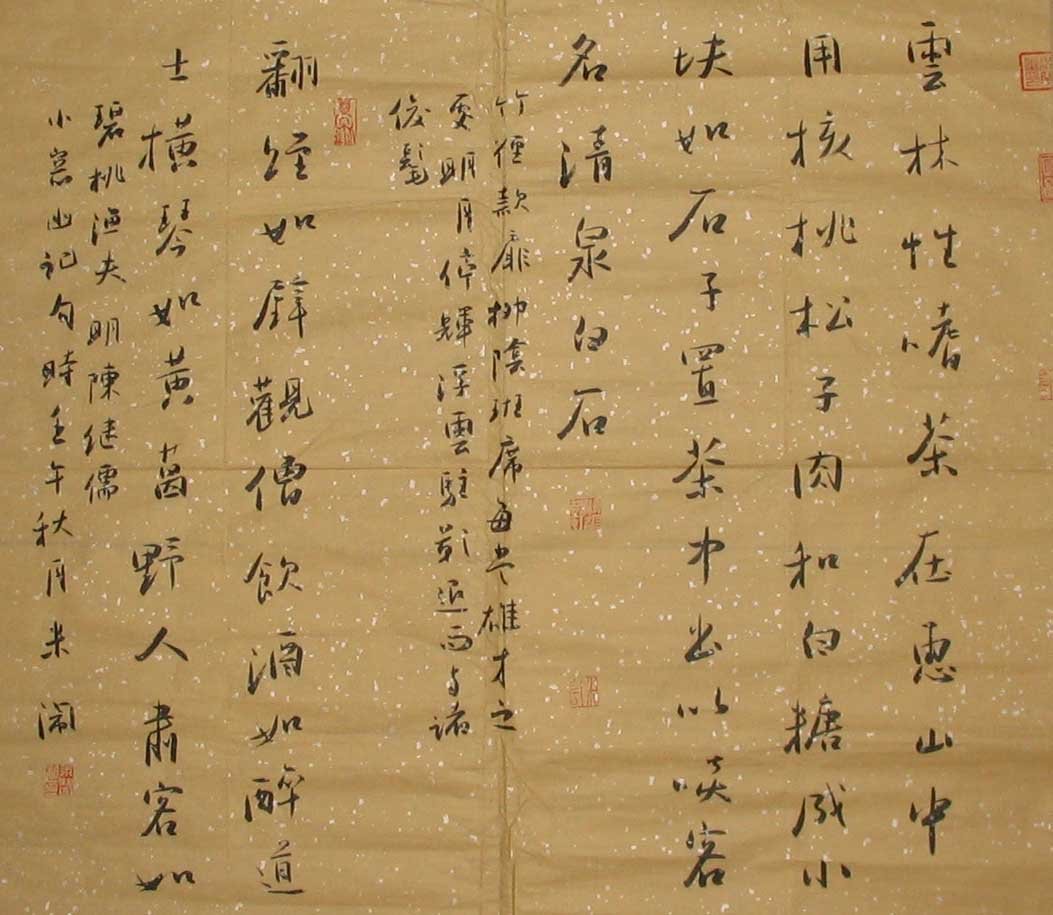 雲林性嗜茶在惠山中
用核桃松子肉和白糖成小
块如石子置茶中出以啖客
名清泉白石
竹徑款扉柳陰班席每当雄才之
處明月停輝浮雲駐影退而与諸
俊髦
翻經如壁觀僧飲酒如醉道
士橫琴如黃葛野人肅客如
碧桃渔夫明陳继儒
小窓幽記句時壬午秋月米闹